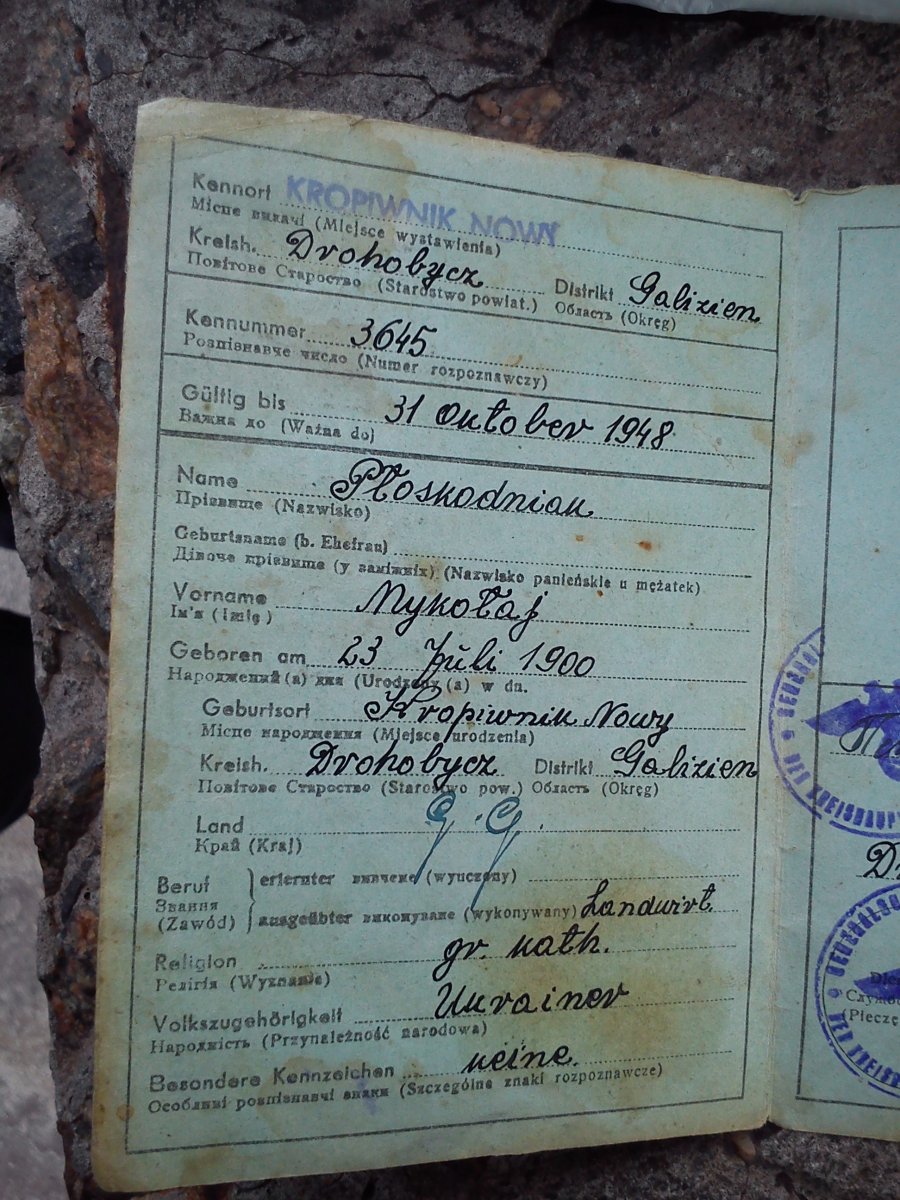 Kennort KROPIWNIK NOWY
Місце видачі (Miejsce wystawienia)
Kreish. Drohobycz Distrikt Galizien
Повітове Староство (Starostwo powiat.) Область (Okręg)
Kennummer 3645
Розпізнавче число (Numer rozpoznawczy)
Gültig bis 31 October 1948
Важна до (Ważna do)
Name Płoskodniak
Прізвище (Nazwisko)
Geburtsname (b. Ehefrau)
Дівоче прізвище (у заміжніх) (Nazwisko panieńskie u mężatek)
Vorname Mykołaj
Ім'я (Imię)
Geboren am 23 Juli 1900
Народжений(а) дня (Urodzony (a) w dn.
Geburtsort Kropiwnik Nowy
Місце народження (Miejsce urodzenia)
Kreish. Drohobycz Distrikt Galizien
Повітове Староство (Starostwo pow.) Область (Okręg)
Land G.G.
Край (Kraj)
Beruf erlernter вивчене (wyuczony)
Звання
(Zawód) ausgeübter виконуване (wykonywany) Landwirt
Religion gr. kath.
Релігія (Wyznanie)
Volkszugehörigkeit Ukrainer
Народність (Przynależność narodowa)
Besondere Kennzeichen keine.
Особливі розпізнавчі знаки (Szczególne znaki rozpoznawcze)